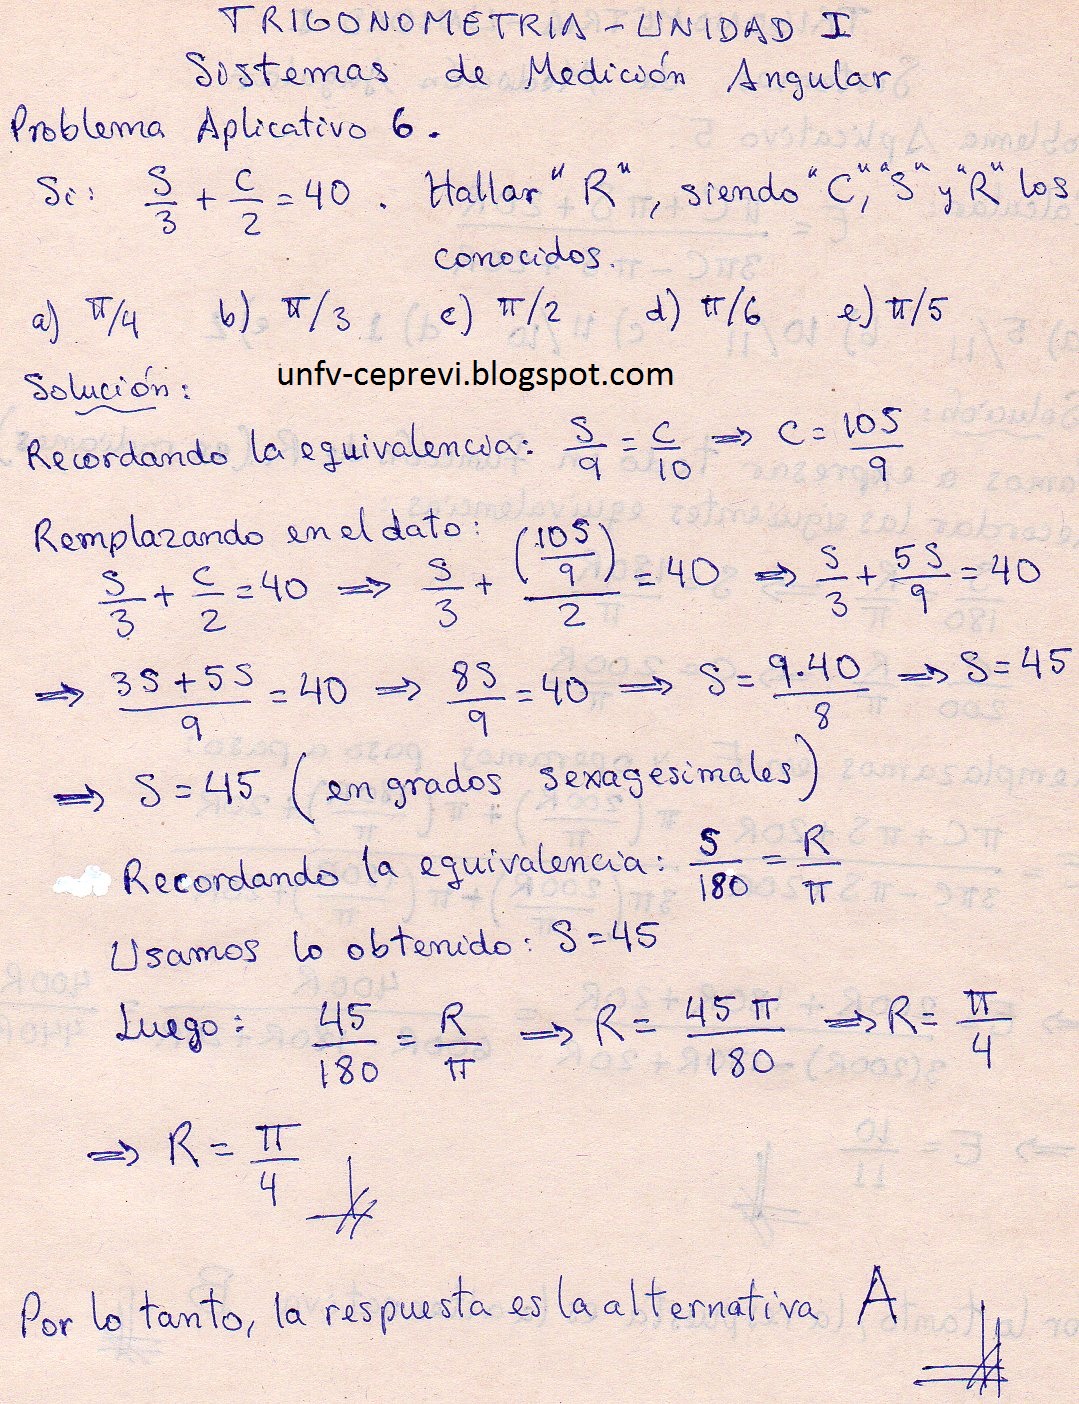 TRIGONOMETRIA - UNIDAD I
Sistemas de Medición Angular
Problema Aplicativo 6.
Si: S/3 + C/2 = 40. Hallar "R", siendo "C", "S" y "R" los
conocidos.
a) π/4 b) π/3 c) π/2 d) π/6 e) π/5
unfv-ceprevi.blogspot.com
Solución:
Recordando la equivalencia: S/9 = C/10 ⇒ C = 10S/9
Remplazando en el dato:
S/3 + C/2 = 40 ⇒ S/3 + (10S/9)/2 = 40 ⇒ S/3 + 5S/9 = 40
⇒ 3S + 5S/9 = 40 ⇒ 8S/9 = 40 ⇒ S = 9.40/8 ⇒ S = 45
⇒ S = 45 (en grados sexagesimales)
Recordando la equivalencia: S/180 = R/π
Usamos lo obtenido: S = 45
Luego: 45/180 = R/π ⇒ R = 45π/180 ⇒ R = π/4
⇒ R = π/4
Por lo tanto, la respuesta es la alternativa A